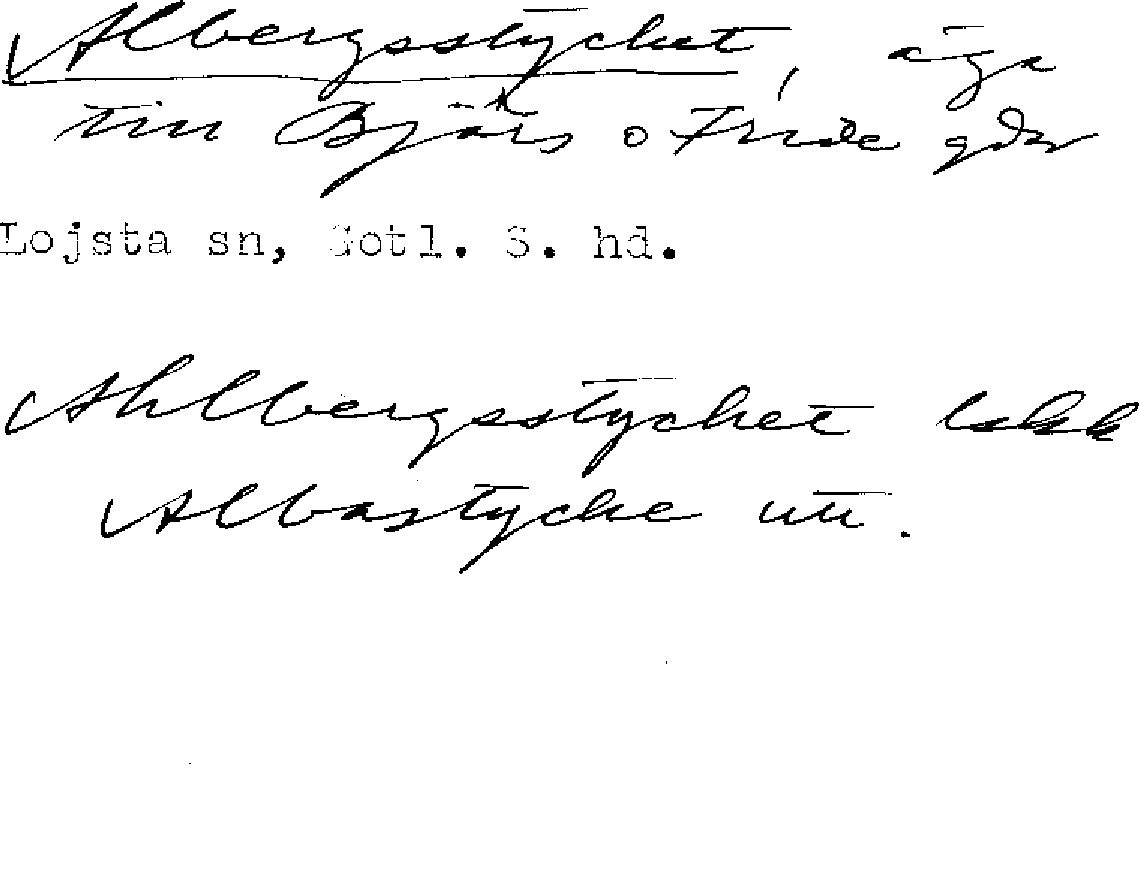 Albergsstycket, äga
till Björs o Fride gdr
Lojsta sn, Gotl. S. hd.
Ahlbergsstycket
Albastycke utt.